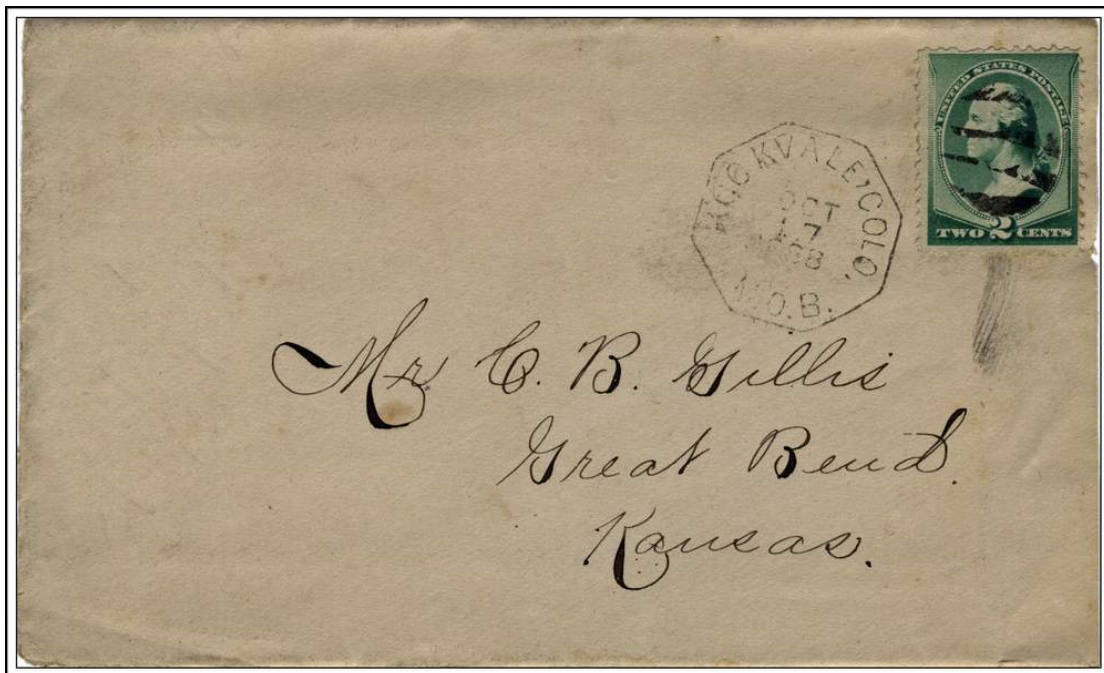 UNITED STATES POSTAGE
TWO 2 CENTS
ROCKVALE, COLO.
OCT
7
M.O.B.
Mr C. B. Gillis
Great Bend.
Kansas.